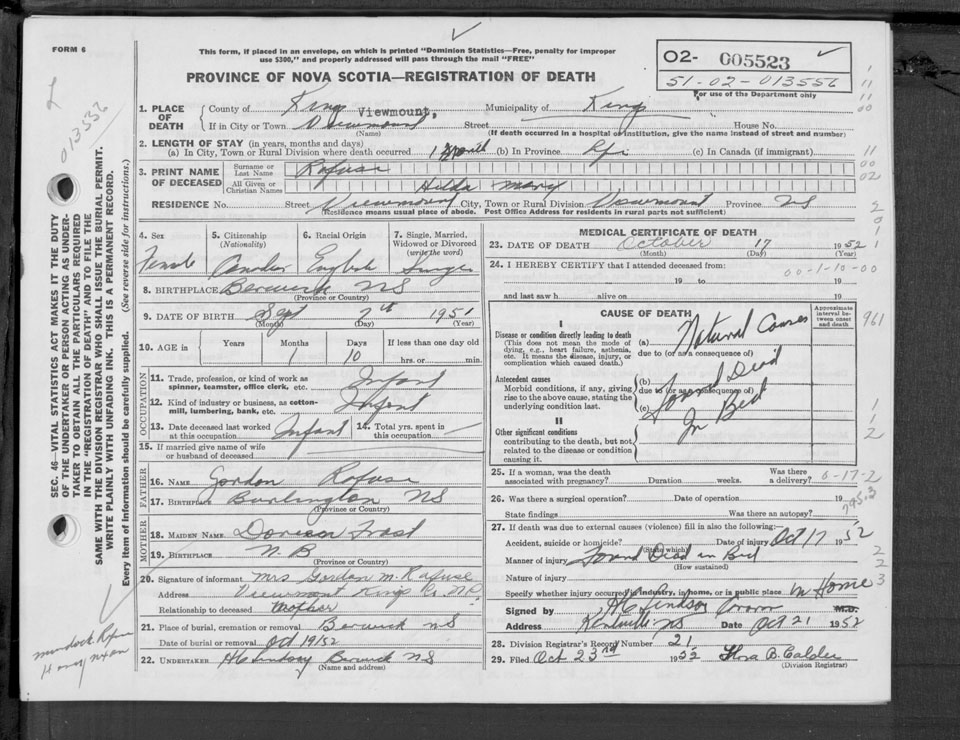 FORM 6
This form, if placed in an envelope, on which is printed "Dominion Statistics—Free, penalty for improper
use $300," and properly addressed will pass through the mail "FREE"
PROVINCE OF NOVA SCOTIA—REGISTRATION OF DEATH
02- 005523
51-02-013556
For use of the Department only
013556
SEC. 46—VITAL STATISTICS ACT MAKES IT THE DUTY
OF THE UNDERTAKER OR PERSON ACTING AS UNDER-
TAKER TO OBTAIN ALL THE PARTICULARS REQUIRED
IN THE "REGISTRATION OF DEATH" AND TO FILE THE
SAME WITH THE DIVISION REGISTRAR WHO SHALL ISSUE THE BURIAL PERMIT.
WRITE PLAINLY WITH UNFADING INK. THIS IS A PERMANENT RECORD.
Every item of information should be carefully supplied. (See reverse side for instructions.)
1. PLACE OF DEATH County of Kings Viewmount, Municipality of Kings
If in City or Town Viewmount Street House No.
(Name) (If death occurred in a hospital or institution, give the name instead of street and number)
2. LENGTH OF STAY (in years, months and days)
(a) In City, Town or Rural Division where death occurred 1 month (b) In Province Life (c) In Canada (if immigrant)
3. PRINT NAME OF DECEASED Surname or Last Name Rafuse
All Given or Christian Names Hilda Mary
RESIDENCE No. Street Viewmount City, Town or Rural Division Viewmount Province NS
(Residence means usual place of abode. Post Office Address for residents in rural parts not sufficient)
4. Sex Female
5. Citizenship (Nationality) Canadian
6. Racial Origin English
7. Single, Married, Widowed or Divorced (write the word) Single
8. BIRTHPLACE Berwick NS
(Province or Country)
9. DATE OF BIRTH Sept 7th 1951
(Month) (Day) (Year)
10. AGE in Years Months Days 10 If less than one day old hrs. or min.
OCCUPATION
11. Trade, profession, or kind of work as spinner, teamster, office clerk, etc. Infant
12. Kind of industry or business, as cotton-mill, lumbering, bank, etc. Infant
13. Date deceased last worked at this occupation Infant 14. Total yrs. spent in this occupation
15. If married give name of wife or husband of deceased
FATHER
16. NAME Gordon Rafuse
17. BIRTHPLACE Burlington NS
(Province or Country)
MOTHER
18. MAIDEN NAME Frost
19. BIRTHPLACE N.B
(Province or Country)
20. Signature of informant Mrs Gordon M. Rafuse
Address Viewmont Kings Co. N.S.
Relationship to deceased Mother
21. Place of burial, cremation or removal Berwick NS
Date of burial or removal Oct 19/52
22. UNDERTAKER H C Lindsay Berwick NS
(Name and address)
MEDICAL CERTIFICATE OF DEATH
23. DATE OF DEATH October 17 1952
(Month) (Day) (Year)
24. I HEREBY CERTIFY that I attended deceased from:
00-1-10-00
19 to 19
and last saw h alive on 19
CAUSE OF DEATH
Approximate interval between onset and death
I
Disease or condition directly leading to death
(This does not mean the mode of dying, e.g., heart failure, asthenia, etc. It means the disease, injury, or complication which caused death.)
(a) Natural Causes
due to (or as a consequence of)
Antecedent causes
Morbid conditions, if any, giving rise to the above cause, stating the underlying condition last.
(b) Found Dead
due to (or as a consequence of)
(c) In Bed
II
Other significant conditions
contributing to the death, but not related to the disease or condition causing it.
25. If a woman, was the death associated with pregnancy? Duration weeks. Was there a delivery? 6-17-2
26. Was there a surgical operation? Date of operation 19
State findings Was there an autopsy? 795.3
27. If death was due to external causes (violence) fill in also the following:—
Accident, suicide or homicide? Date of injury Oct 17 1952
(State which)
Manner of injury Found Dead in Bed
(How sustained)
Nature of injury
Specify whether injury occurred in industry, in home, or in public place In Home
Signed by H C Lindsay Coroner M.D.
Address Kentville NS Date Oct 21 1952
28. Division Registrar's Record Number 21
29. Filed Oct 23rd 1952 Flora B. Calder
(Division Registrar)
961